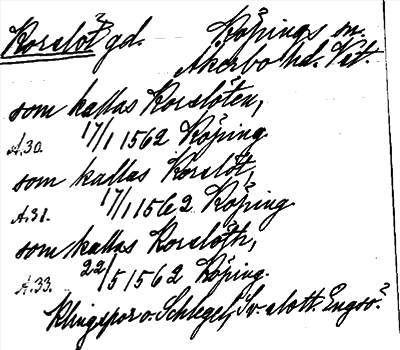 Korslöt gd. Köpings sn.
Åkerbo hd. Vst.
som kallas Korslöten,
A.30. 17/1 1562 Köping
som kallas Korslöt,
A.31. 17/1 1562 Köping
som kallas Korslöth,
A.33. 22/5 1562 Köping.
Klingspor o. Schlegel, Sv. slott. Engsö.